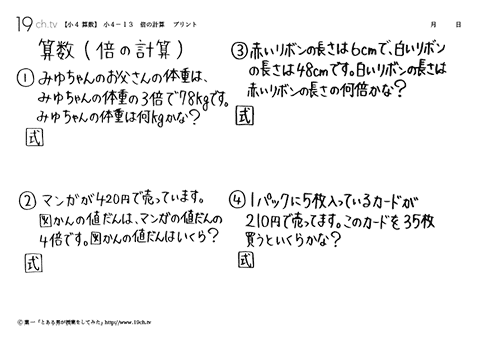 19ch.tv 【小4 算数】 小4－13 倍の計算 プリント 月 日
算数（倍の計算）
① みゆちゃんのお父さんの体重は、
みゆちゃんの体重の3倍で78kgです。
みゆちゃんの体重は何kgかな？
式
② マンガが420円で売っています。
図かんの値だんは、マンガの値だんの
4倍です。図かんの値だんはいくら？
式
③ 赤いリボンの長さは6cmで、白いリボン
の長さは48cmです。白いリボンの長さは
赤いリボンの長さの何倍かな？
式
④ 1パックに5枚入っているカードが
210円で売ってます。このカードを35枚
買うといくらかな？
式
Ⓒ 葉一「とある男が授業をしてみた」http://www.19ch.tv